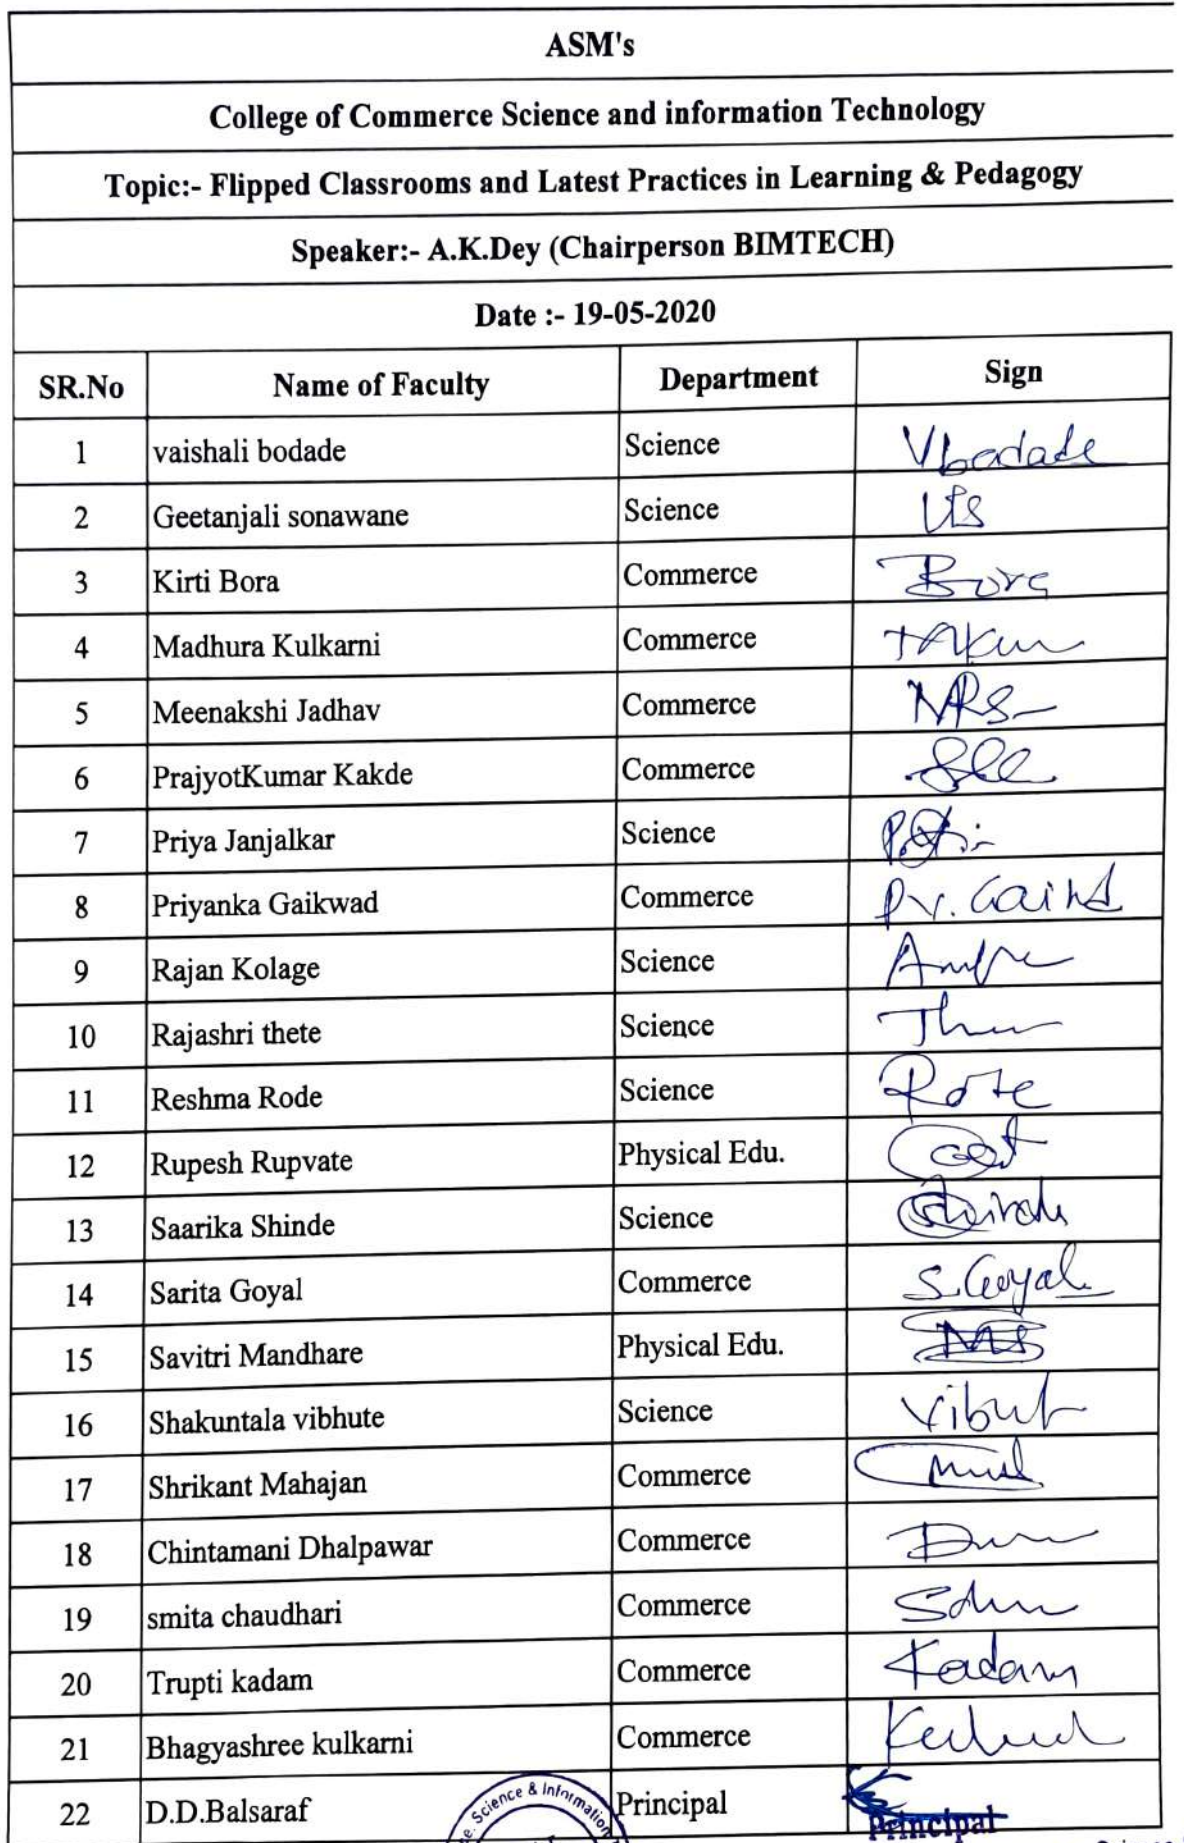 ASM's
College of Commerce Science and information Technology
Topic:- Flipped Classrooms and Latest Practices in Learning & Pedagogy
Speaker:- A.K.Dey (Chairperson BIMTECH)
Date :- 19-05-2020
SR.No Name of Faculty Department Sign
1 vaishali bodade Science Vbodade
2 Geetanjali sonawane Science
3 Kirti Bora Commerce Bora
4 Madhura Kulkarni Commerce
5 Meenakshi Jadhav Commerce
6 PrajyotKumar Kakde Commerce
7 Priya Janjalkar Science
8 Priyanka Gaikwad Commerce
9 Rajan Kolage Science
10 Rajashri thete Science
11 Reshma Rode Science
12 Rupesh Rupvate Physical Edu.
13 Saarika Shinde Science
14 Sarita Goyal Commerce S.Goyal
15 Savitri Mandhare Physical Edu.
16 Shakuntala vibhute Science
17 Shrikant Mahajan Commerce
18 Chintamani Dhalpawar Commerce
19 smita chaudhari Commerce
20 Trupti kadam Commerce Kadam
21 Bhagyashree kulkarni Commerce
22 D.D.Balsaraf Principal
Science & Information
Principal